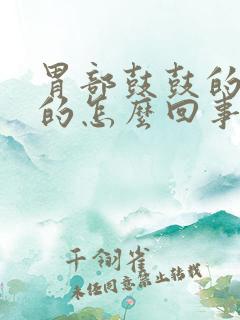 胃部鼓鼓的
的怎麼回事
千翎雀
未经同意禁止转载